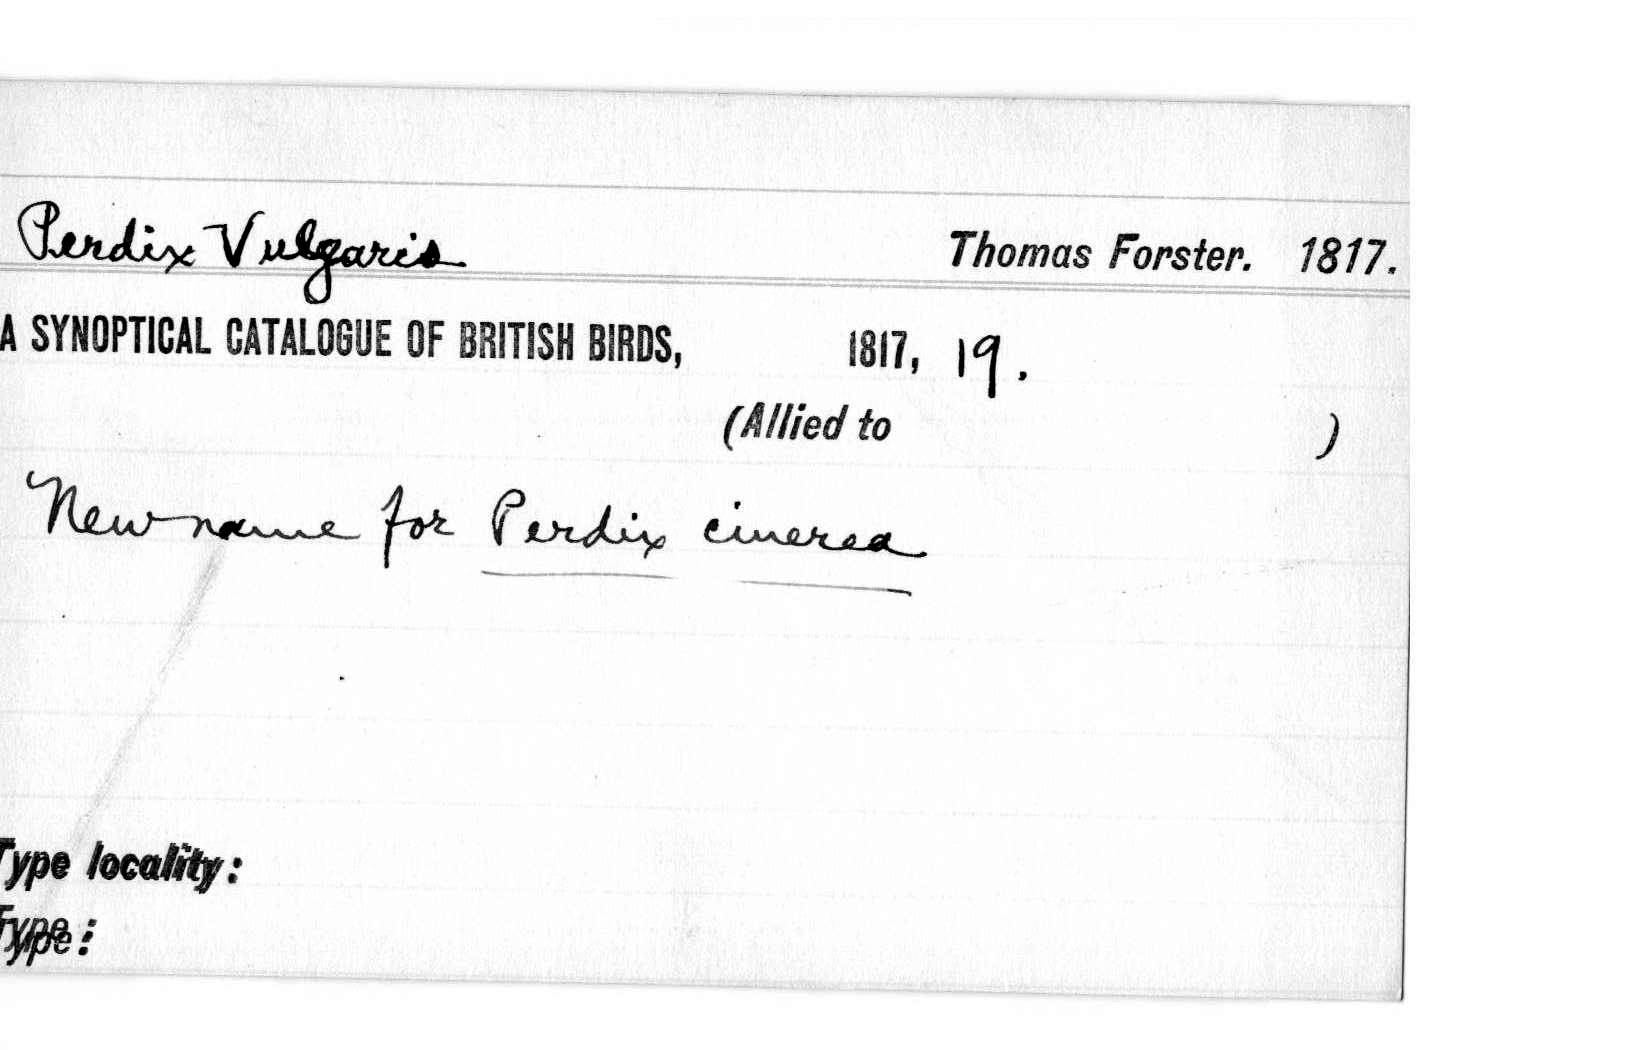 Perdix Vulgaris Thomas Forster. 1817.
A SYNOPTICAL CATALOGUE OF BRITISH BIRDS, 1817, 19.
(Allied to )
New name for Perdix cinerea
Type locality:
Type: